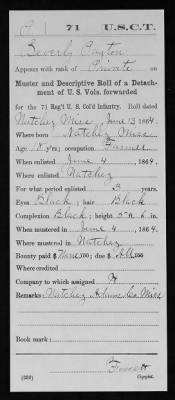 71 U.S.C.T.
Beverly Payton
Appears with rank of Private on
Muster and Descriptive Roll of a Detach-
ment of U. S. Vols. forwarded
for the 71 Reg't U. S. Col'd Infantry. Roll dated
Natchez Miss June 13 1864.
Where born Natchez Miss
Age 18 y'rs; occupation Farmer
When enlisted June 4, 1864.
Where enlisted Natchez
For what period enlisted 3 years.
Eyes Black; hair Black
Complexion Black; height 5 ft. 6 in.
When mustered in June 4, 1864.
Where mustered in Natchez
Bounty paid $ None 100; due $ 100
Where credited
Company to which assigned
Remarks: Natchez Adams Co. Miss
Book mark:
Copyist.